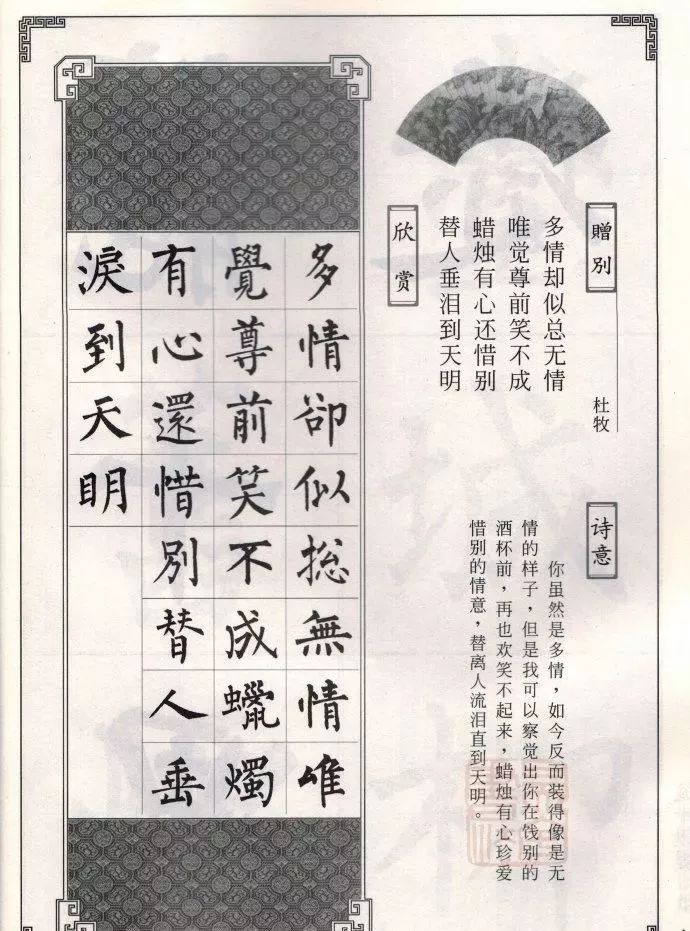 赠别
杜牧
多情却似总无情
唯觉尊前笑不成
蜡烛有心还惜别
替人垂泪到天明
诗意
你虽然是多情，如今反而装得像是无
情的样子，但是我可以察觉出你在饯别的
酒杯前，再也欢笑不起来，蜡烛有心珍爱
惜别的情意，替离人流泪直到天明。
欣赏
多情卻似総無情唯
覺尊前笑不成蠟燭
有心還惜別替人垂
淚到天明